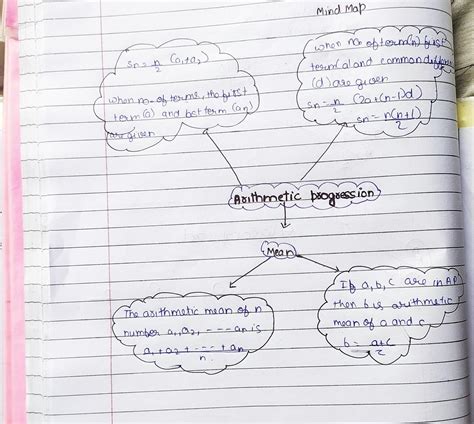 Mind Map
Sn = n/2 (a1+a2)
when no. of terms, the first
term (a) and last term (an)
are given
when no of term(n) first
term (a) and common difference
(d) are given
Sn = n/2 (2a+(n-1)d)
Sn = n(n+1)/2
Arithmetic progression
Mean
The arithmetic mean of n
number a1, a2, ---- an is
a1+a2+----+an/n.
If a, b, c are in AP
then b is arithmetic
mean of a and c
b = a+c/2